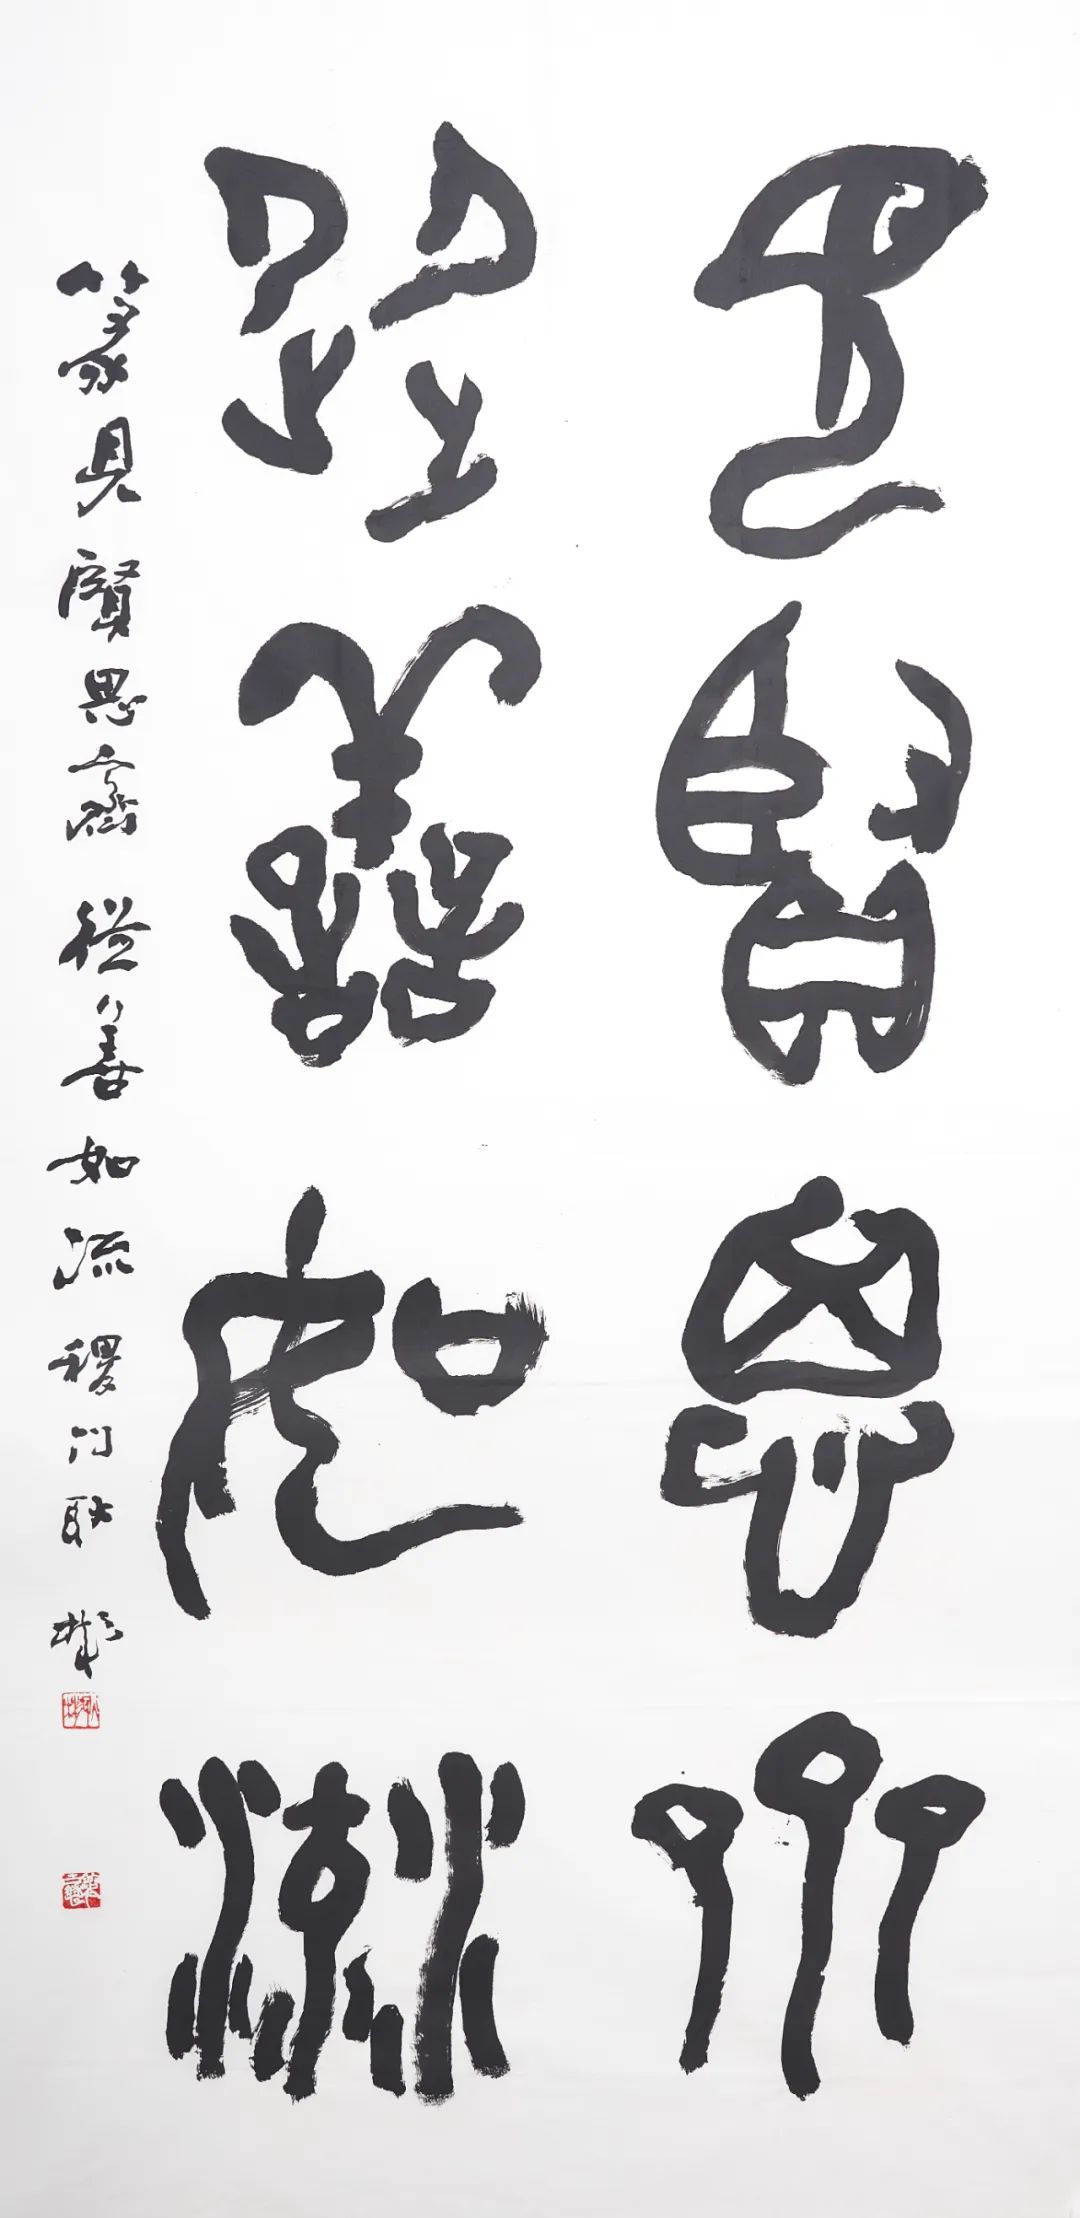 見賢思齊
從善如流
篆見賢思齊 從善如流 稷門耿彬